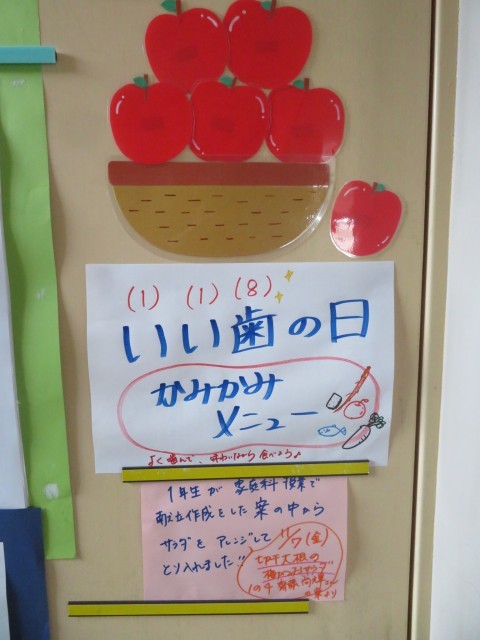 (1) (1) (8)
いい歯の日
かみかみ
メニュー
よく噛んで、味わいながら食べよう♪
1年生が家庭科授業で
献立作成をした案の中から
サラダをアレンジして
とり入れました!!
11/7(金)
切干大根の